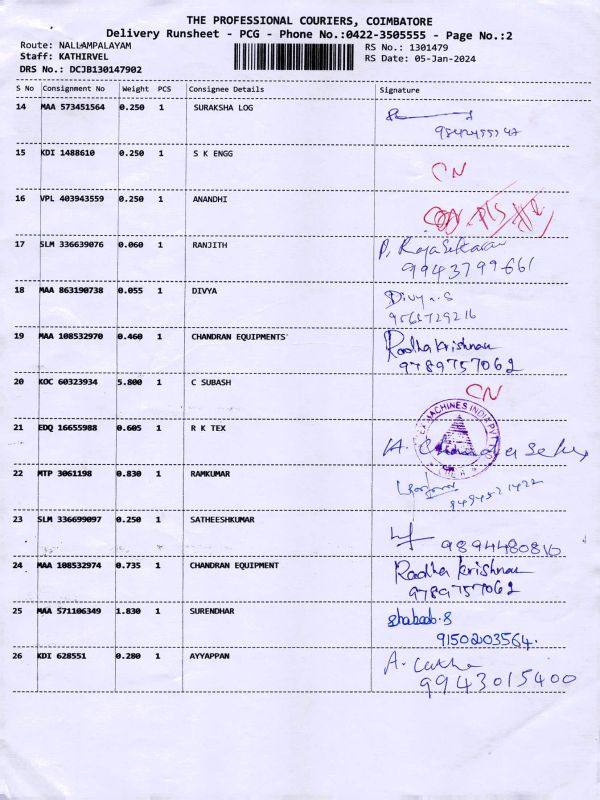 THE PROFESSIONAL COURIERS, COIMBATORE
Delivery Runsheet - PCG - Phone No.:0422-3505555 - Page No.:2
Route: NALLAMPALAYAM
Staff: KATHIRVEL
DRS No.: DCJB130147902
RS No.: 1301479
RS Date: 05-Jan-2024
S No Consignment No Weight PCS Consignee Details Signature
14 MAA 573451564 0.250 1 SURAKSHA LOG
15 KDI 1488610 0.250 1 S K ENGG CN
16 VPL 403943559 0.250 1 ANANDHI
17 SLM 336639076 0.060 1 RANJITH P. RajaSekaran
9943799661
18 MAA 863190738 0.055 1 DIVYA Divya.S
9565729216
19 MAA 108532970 0.460 1 CHANDRAN EQUIPMENTS Radha krishnan
9789757062
20 KOC 60323934 5.800 1 C SUBASH CN
21 EDQ 16655988 0.605 1 R K TEX
22 MTP 3061198 0.830 1 RAMKUMAR
23 SLM 336699097 0.250 1 SATHEESHKUMAR
9894480810
24 MAA 108532974 0.735 1 CHANDRAN EQUIPMENT Radha krishnan
9789757062
25 MAA 571106349 1.830 1 SURENDHAR shabaab.S
9150203564.
26 KDI 628551 0.280 1 AYYAPPAN A. Latha
9943015400